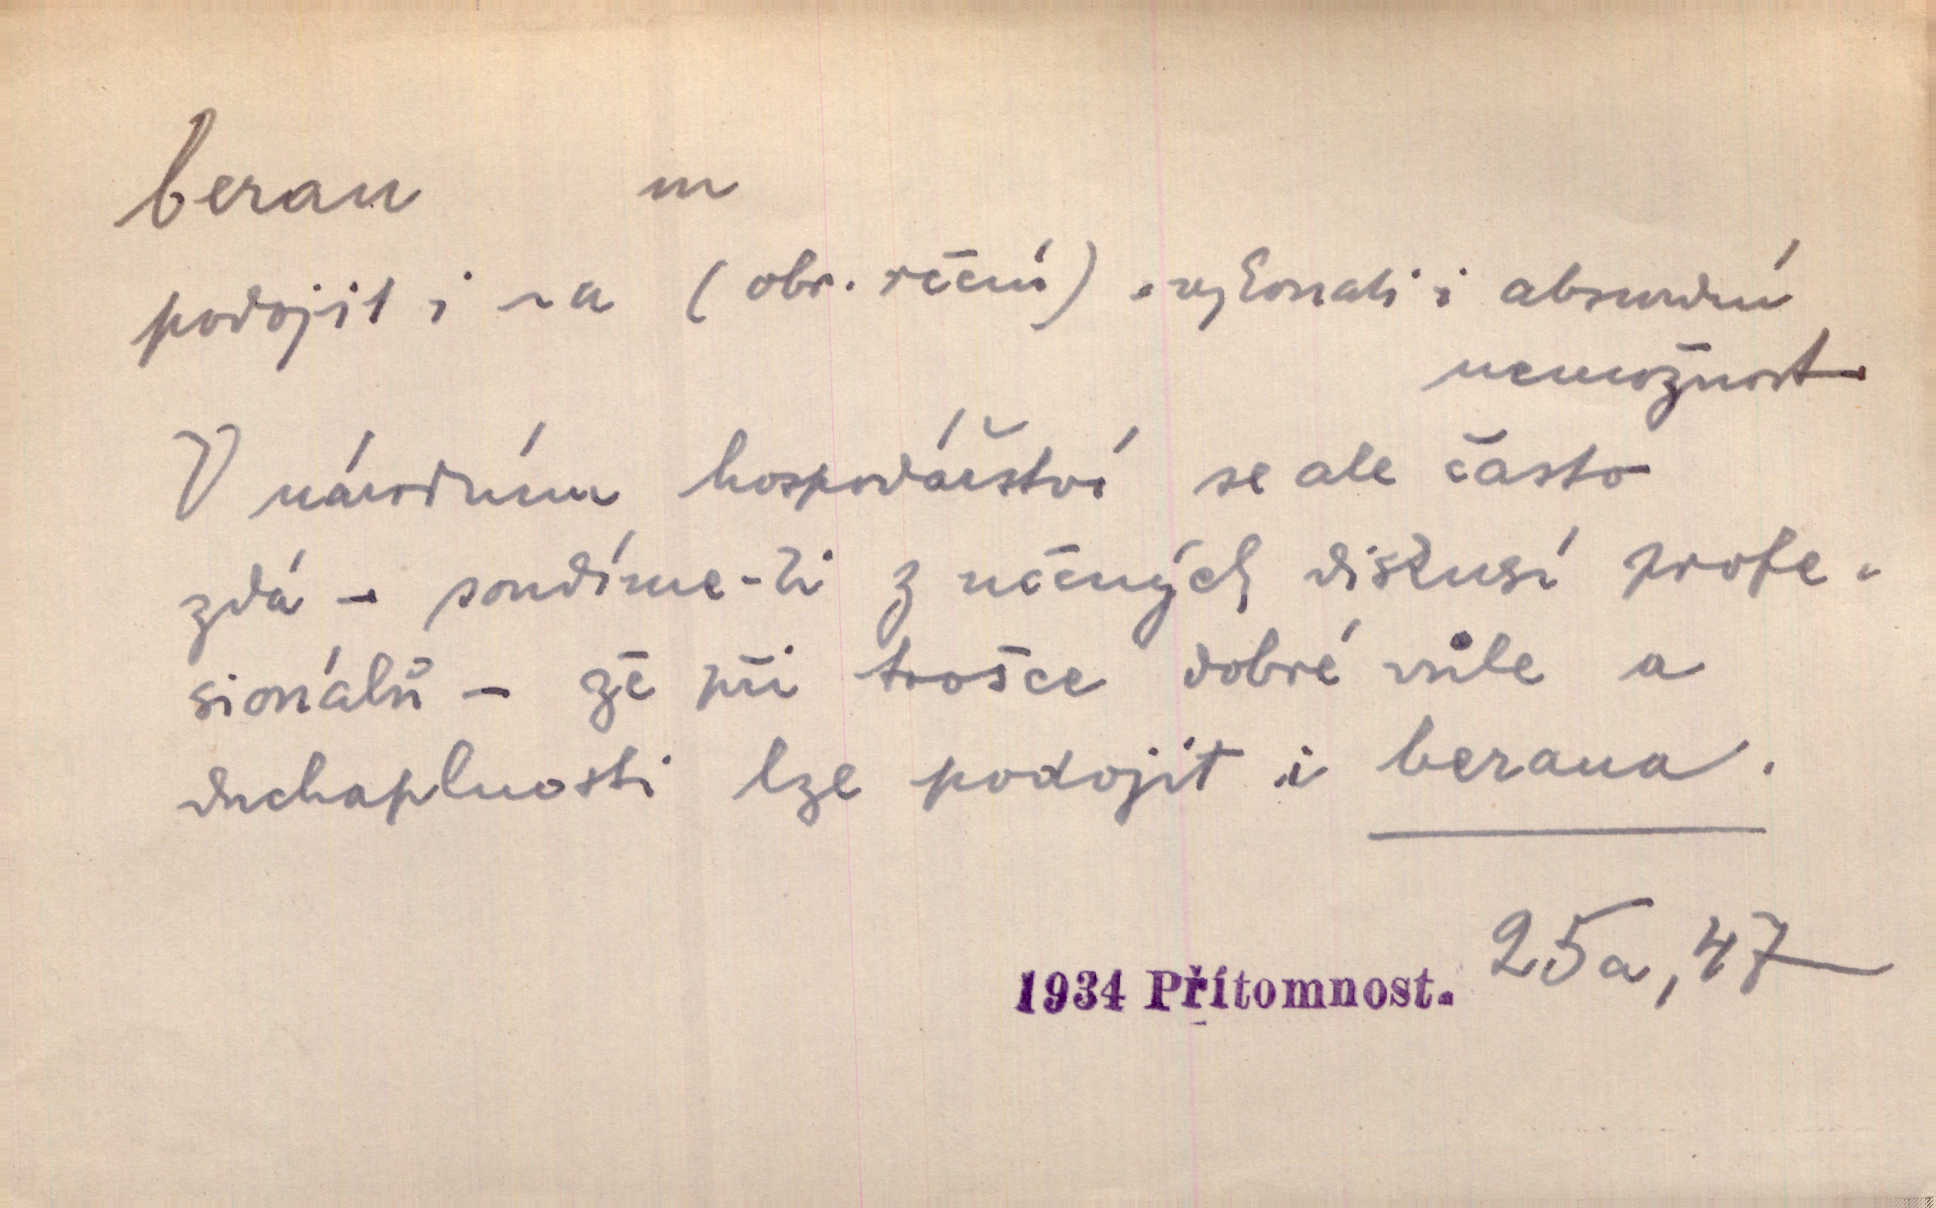 beran m
podojit i -a (obr. rčení) vykonati i absurdní
nemožnost
V národním hospodářství se ale často
zdá - soudíme-li z učených diskusí profe-
sionálů - že při trošce dobré vůle a
duchaplnosti lze podojit i berana.
1934 Přítomnost. 25a, 47